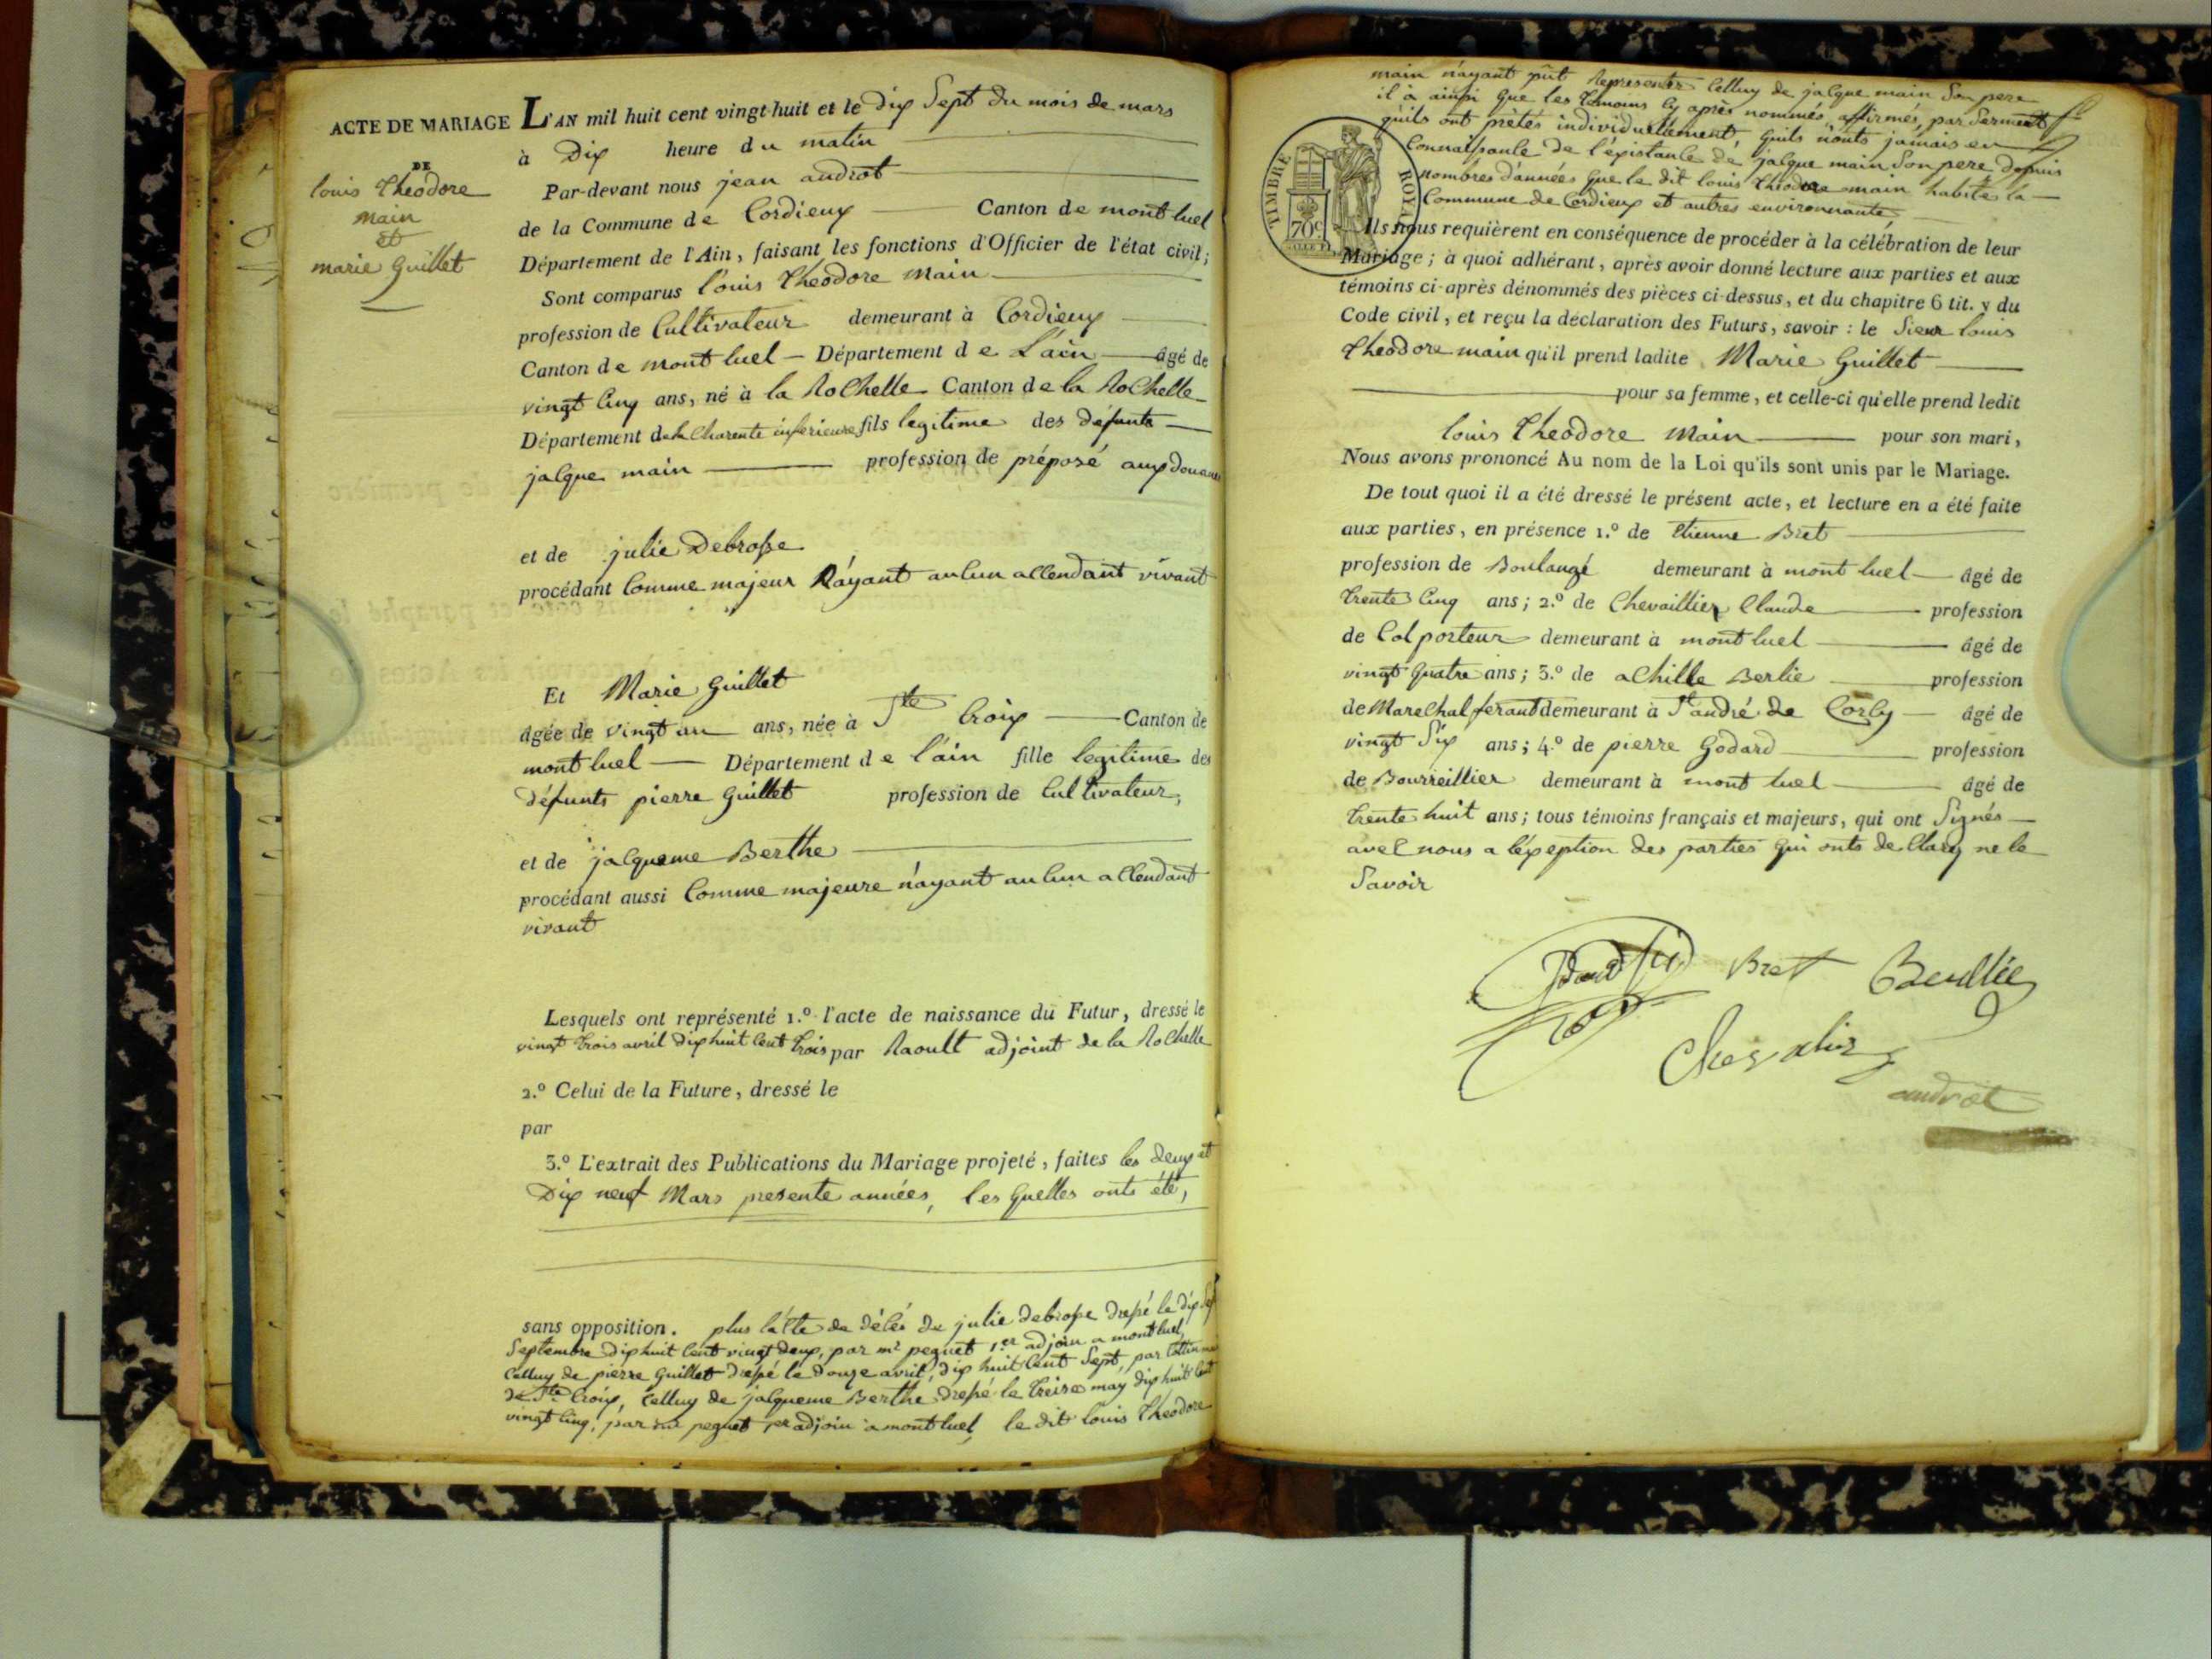 ACTE DE MARIAGE
DE
louis Theodore
main
et
marie Guillet
L'AN mil huit cent vingt-huit et le dix Sept du mois de mars
à Dix heure du matin
Par-devant nous jean androt
de la Commune de Cordieux Canton de mont luel
Département de l'Ain, faisant les fonctions d'Officier de l'état civil;
Sont comparus louis Theodore Main
profession de Cultivateur demeurant à Cordieux
Canton de mont luel Département de L'ain âgé de
vingt Cinq ans, né à la Rochelle Canton de la Rochelle
Département de la Charente inférieure fils legitime des defunts
jacque main profession de préposé aux douanes
et de julie Debrosse
procédant Comme majeur N'áyant aucun accendant vivant
Et Marie Guillet
âgée de vingt un ans, née à Ste Croix Canton de
mont luel Département de l'ain fille legitime des
défunts pierre Guillet profession de Cultivateur,
et de jacqueme Berthe
procédant aussi Comme majeure n'ayant aucun accendant
vivant
Lesquels ont représenté 1.º l'acte de naissance du Futur, dressé le
vingt trois avril dix huit Cent trois par Raoult adjoint de la Rochelle
2.º Celui de la Future, dressé le
par
3.º L'extrait des Publications du Mariage projeté, faites les deux et
Dix neuf Mars presente années, les quelles onts été,
sans opposition. plus l'acte de décés de julie debrosse dressé le dix Sept
Septembre dix huit Cent vingt deux, par mr peguet 1er adjoin a mont luel,
Celluy de pierre Guillet dressé le douze avril, dix huit Cent Sept, par
de Ste Croix, Celluy de jacqueme Berthe dressé le treize may dix huit Cent
vingt Cinq, par mr peguet 1er adjoin a mont luel, le dit louis Theodore
main n'ayant pût representer Celluy de jacque main Son pere
il à ainsi que les temoins cy après nommés, affirmés, par Serment
quils ont pretés individuellement, quils n'onts jamais en
Connaissance de l'existance de jacque main Son pere depuis
nombres d'années que le dit louis theodore main habite la
Commune de Cordieux et autres environnante,
TIMBRE ROYAL
70c
Ils nous requièrent en conséquence de procéder à la célébration de leur
Mariage; à quoi adhérant, après avoir donné lecture aux parties et aux
témoins ci-après dénommés des pièces ci-dessus, et du chapitre 6 tit. v du
Code civil, et reçu la déclaration des Futurs, savoir: le Sieur louis
Theodore main qu'il prend ladite Marie Guillet
pour sa femme, et celle-ci qu'elle prend ledit
louis Theodore Main pour son mari,
Nous avons prononcé Au nom de la Loi qu'ils sont unis par le Mariage.
De tout quoi il a été dressé le présent acte, et lecture en a été faite
aux parties, en présence 1.º de Etienne Bret
profession de Boulangé demeurant à mont luel âgé de
trente Cinq ans; 2.º de Chevaillier Claude profession
de Colporteur demeurant à mont luel âgé de
vingt quatre ans; 3.º de achille Berlie profession
de Marechal ferant demeurant à St andré de Corcy âgé de
vingt Six ans; 4.º de pierre Godard profession
de Bourreillier demeurant à mont luel âgé de
trente huit ans; tous témoins français et majeurs, qui ont Signés
avec nous a l'éxeption des parties qui onts de Clarez ne le
Savoir
Bret
Chevalier
androt